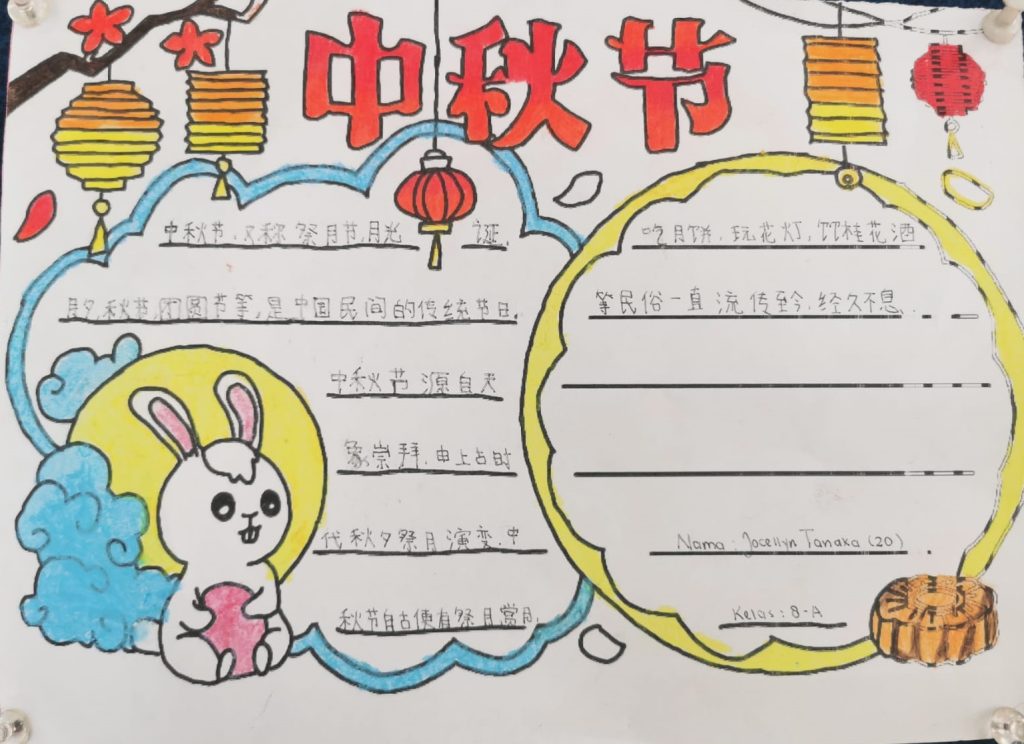 中秋节
中秋节,又称祭月节,月光诞,
月夕,秋节,团圆节等,是中国民间的传统节日,
中秋节源自天
象崇拜,由上古时
代秋夕祭月演变,中
秋节自古便有祭月赏月,
吃月饼,玩花灯,饮桂花酒
等民俗一直流传至今,经久不息.
Nama : Jocellyn Tanaka (20)
Kelas : 8-A